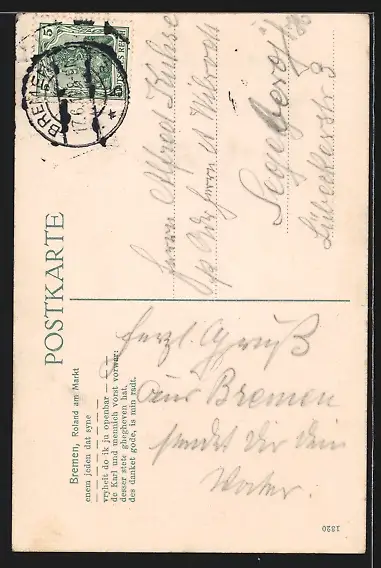 POSTKARTE
Bremen, Roland am Markt
enem jeden dat syne
vryheit do ik ju openbar —
de Karl und mennich vorst vorwar:
desser stete ghegheven hat,
des danket gode, is min radt.
1320
5
BREMEN
17.6.
Herrn Alfred
Herrn
Segeberg
Lübeckerstr 3
Herzl. Gruß
aus Bremen
sendet Dir Dein
Vater.